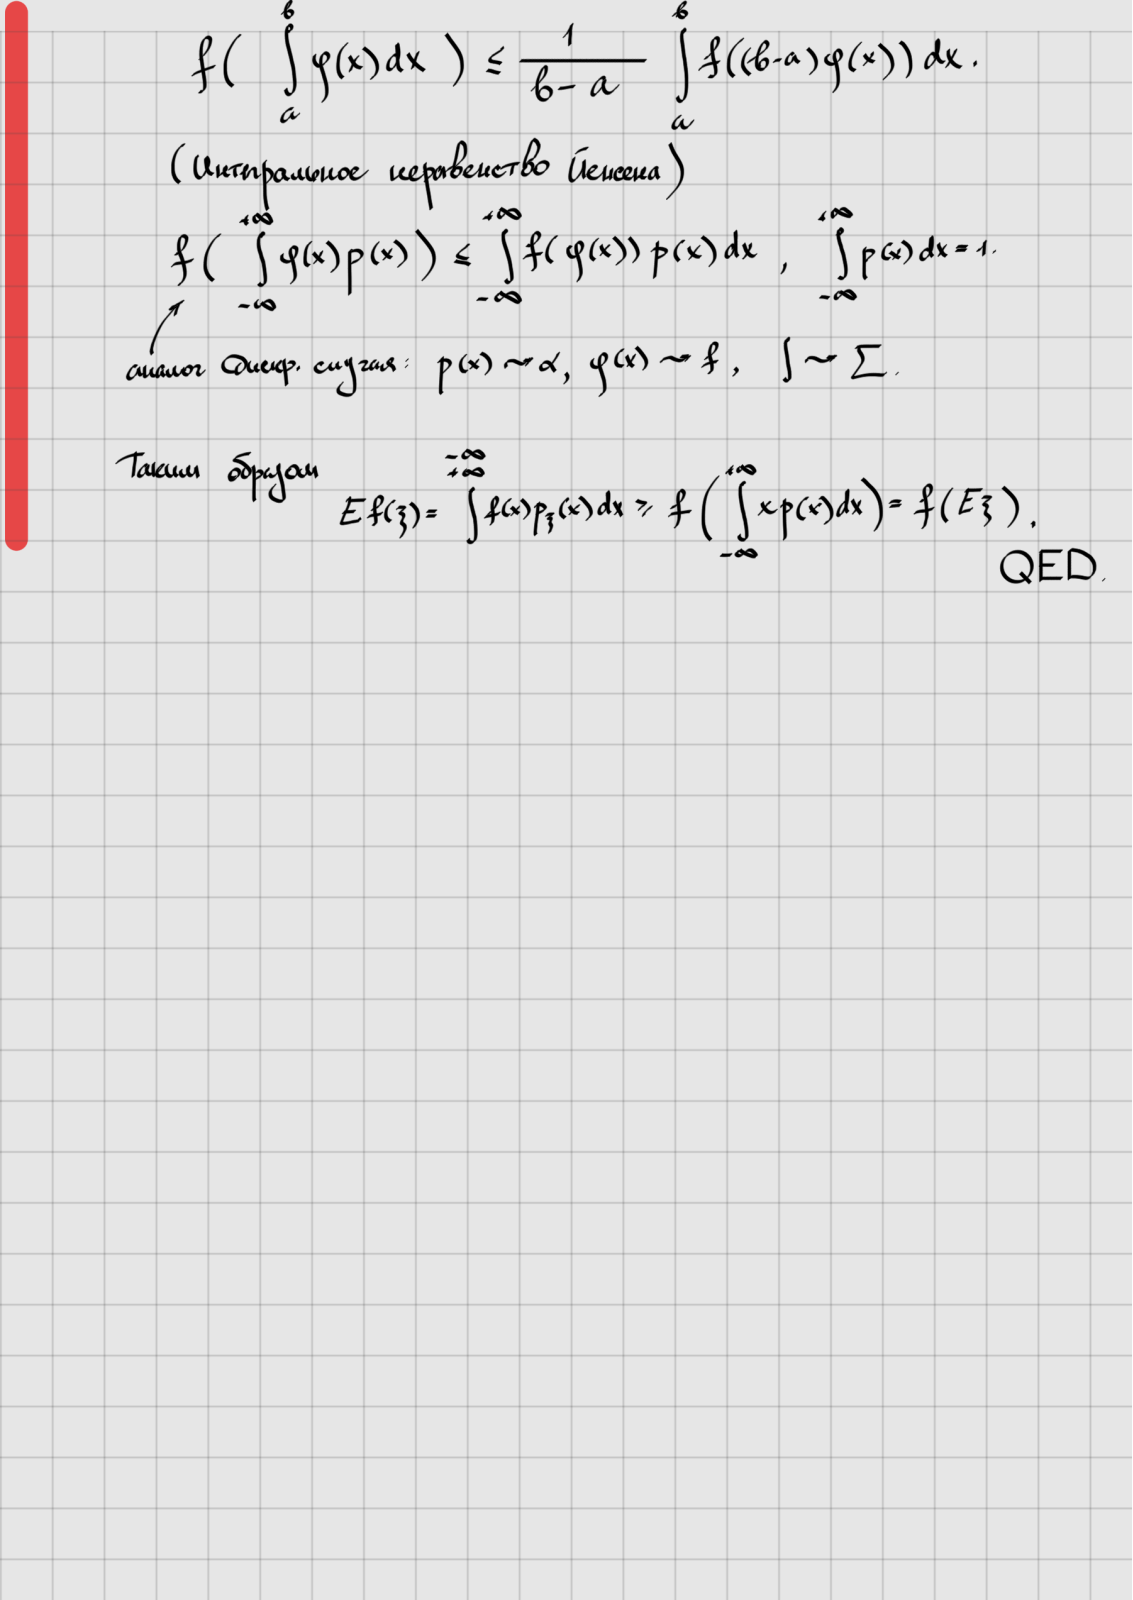 f( ∫_a^b φ(x)dx ) ≤ 1/(b-a) ∫_a^b f((b-a)φ(x)) dx.
(Интегральное неравенство Йенсена)
f( ∫_{-∞}^{+∞} φ(x)p(x) ) ≤ ∫_{-∞}^{+∞} f(φ(x)) p(x) dx , ∫_{-∞}^{+∞} p(x) dx = 1.
аналог дискр. случая: p(x) ~ α, φ(x) ~ f, ∫ ~ Σ.
Таким образом
E f(ξ) = ∫_{+∞}^{-∞} f(x)p_ξ(x) dx ≥ f( ∫_{-∞}^{+∞} x p(x) dx ) = f(Eξ).
QED.